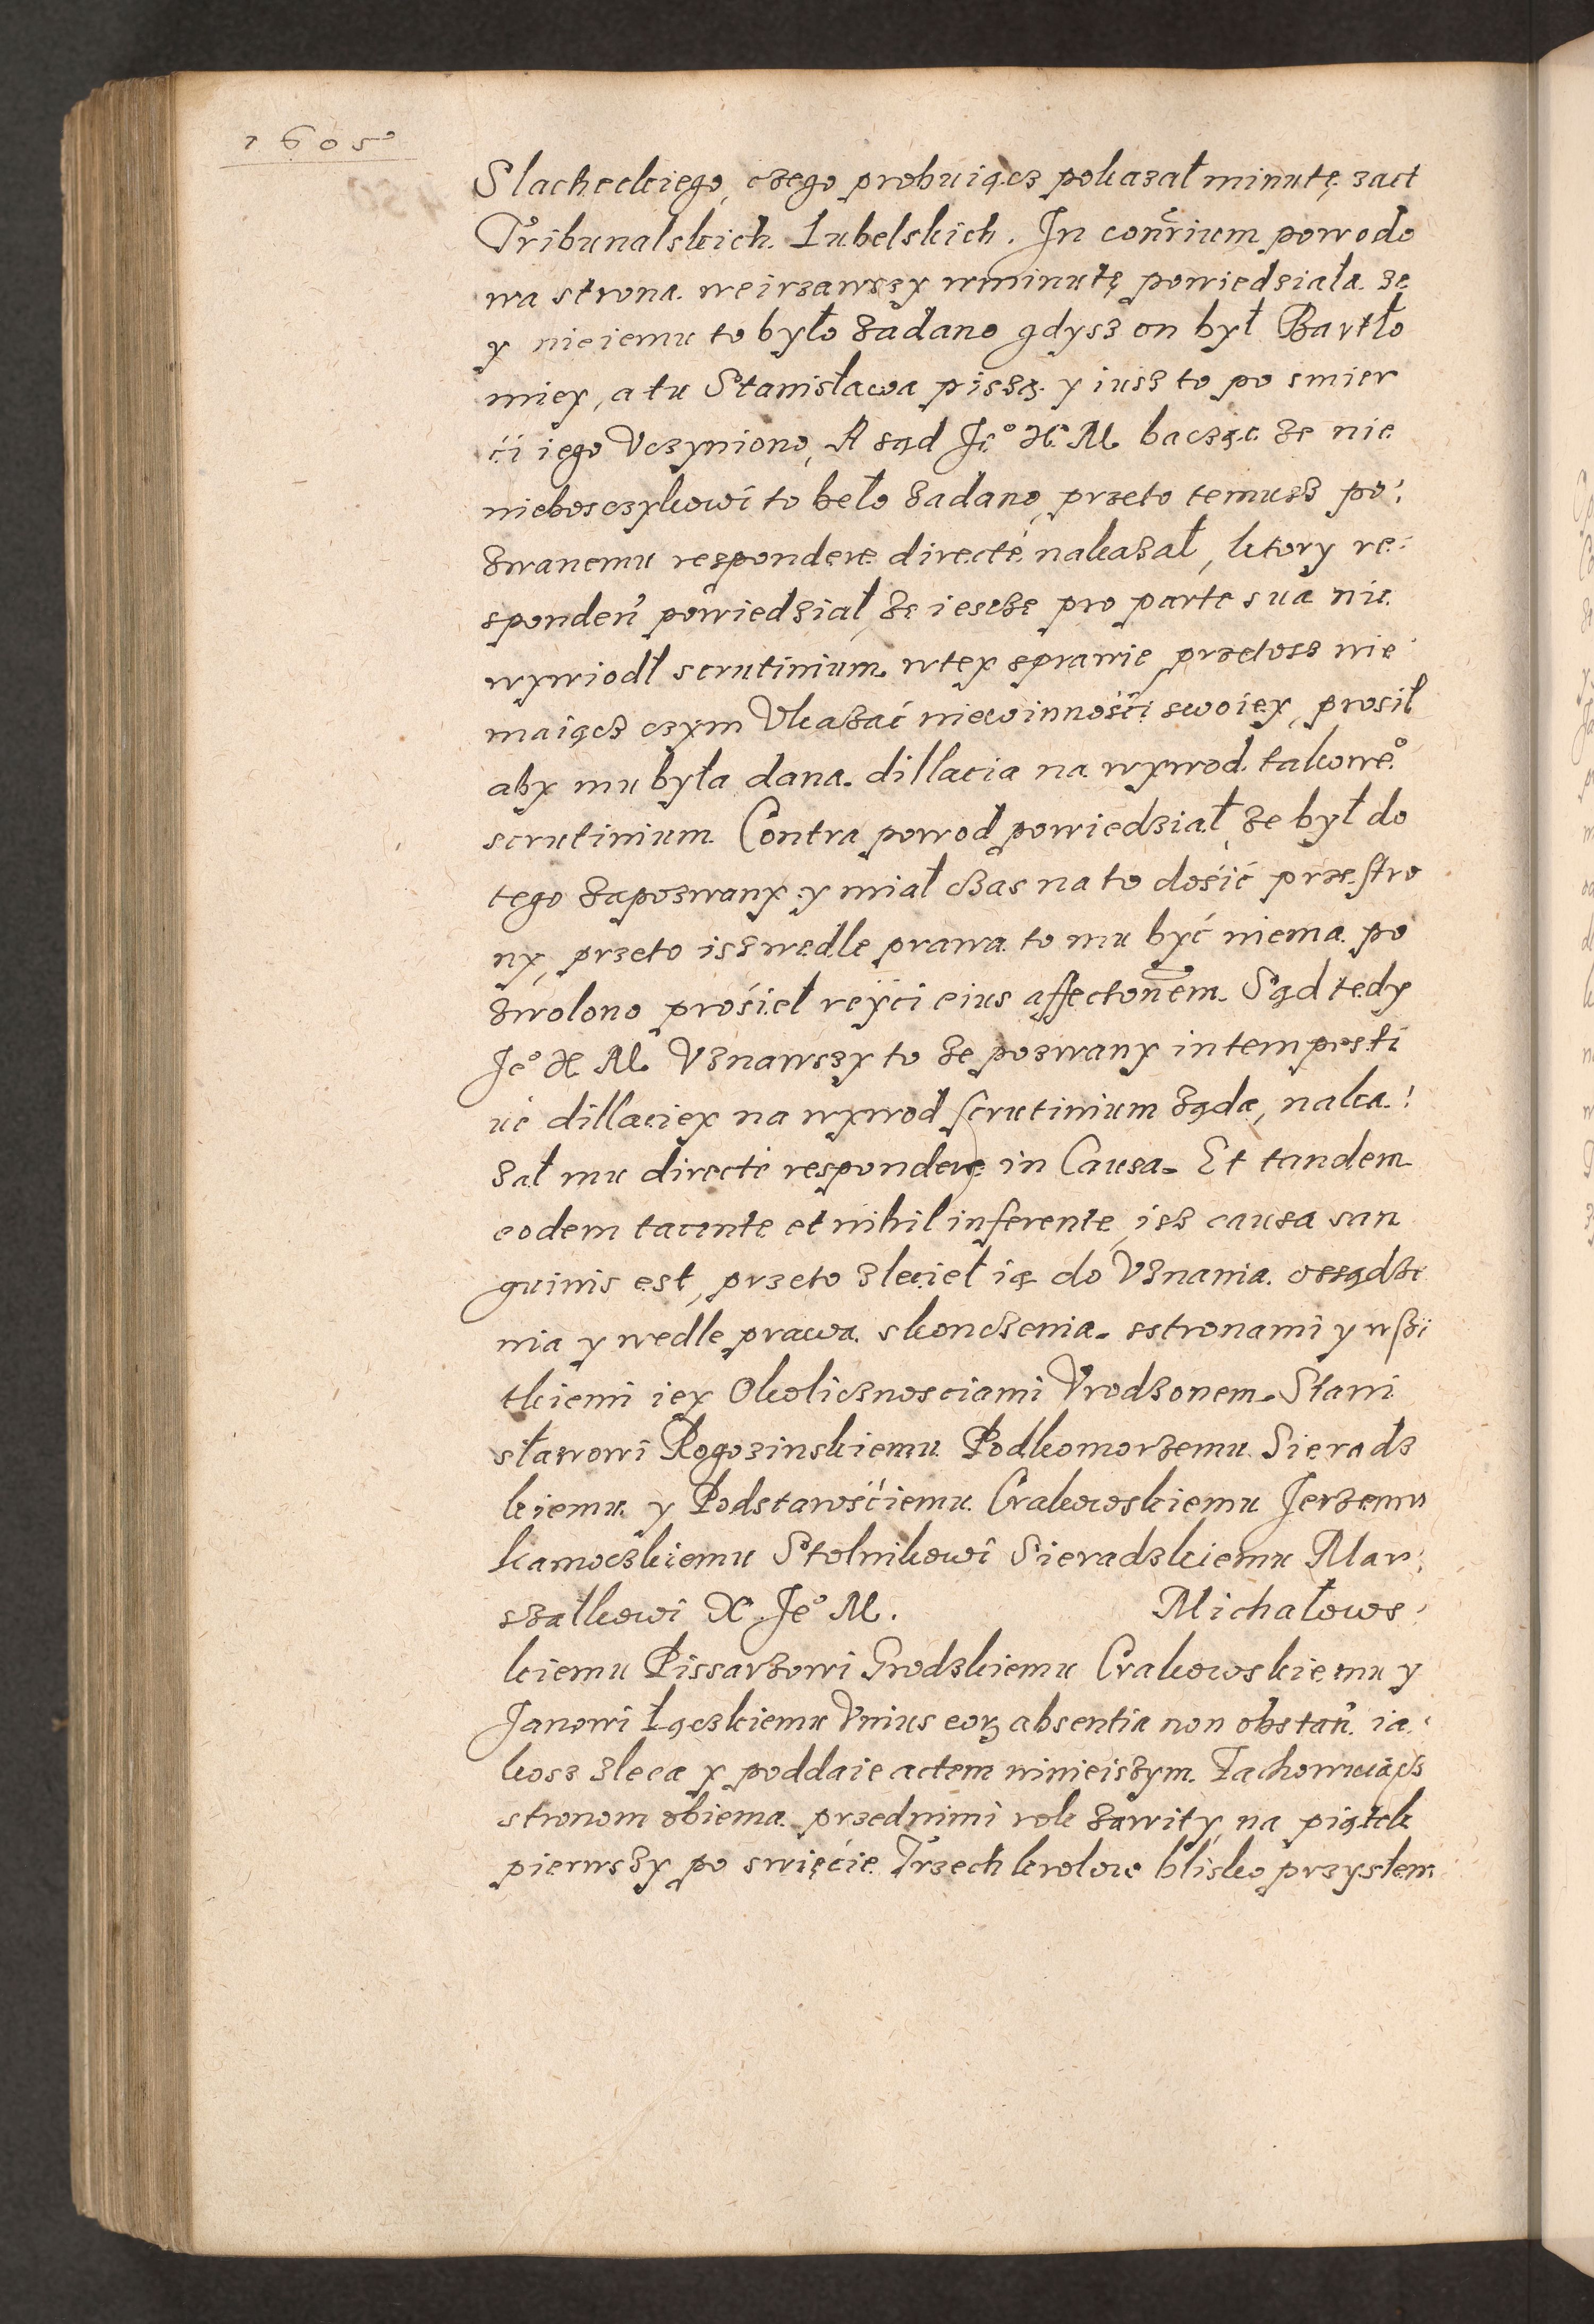 1605
Slacheckiego, czego probuiącz pokazał minutę zact
Tribunalskich. Lubelskich. In conrium powodo
wa strona. weirzawszy wminutę powiedziała. że
y nieiemu to było zadano gdysz on był Bartło
miey, a tu Stanisława piszą. y iusz to po smier
ći iego Vczyniono, A sąd Je° X. M. bacząc że nie
nieboszczykowi to beło zadano, przeto temusz po:
zwanemu respondere directè nakazał, ktory re:
sponden powiedział, że iescze pro parte sua nie
wywiodł scrutinium. wtey sprawie przetosz nie
maiącz czym Vkazać niewinnośći swoiey, prosił
aby mu była dana. dillacia na wywod. takowe°
scrutinium. Contra powod powiedział, że był do
tego zapozwany: y miał czas na to dośić przestro
ny, przeto isz wedle prawa. to mu być niema. po
zwolono prośieł reijci eius affectonem. Sąd tedy
Je° X M. Vznawszy to że pozwany intempesti
uè dillaciey na wywod scrutinium żąda, naka:
zał mu directè respondere in Causa. Et tandem
eodem tacente et nihil inferente, isz causa san
guinis est, przeto zlecieł ią do Vznania. osządze
nia y wedle prawa. skonczenia. sstronami y wszi
tkiemi iey Okolicznosciami Vrodzonem. Stani
sławowi Rogozinskiemu Podkomorzemu Sieradz
kiemu. y Podstarośćiemu. Crakowskiemu Jerzemu
kamoczkiemu Stolnikowi Sieradzkiemu Mar:
szałkowi X Je° M. Michałows:
kiemu Pissarzowi Grodzkiemu Crakowskiemu y
Janowi Łączkiemu Vnius eorz absentia non obstan. ia:
kosz zleca y poddaie actem ninieiszym. Zachowuiącz
stronom obiema. przednimi rok zawity, na piątek
pierwszy po swięcie Trzech krolow blisko przysłem